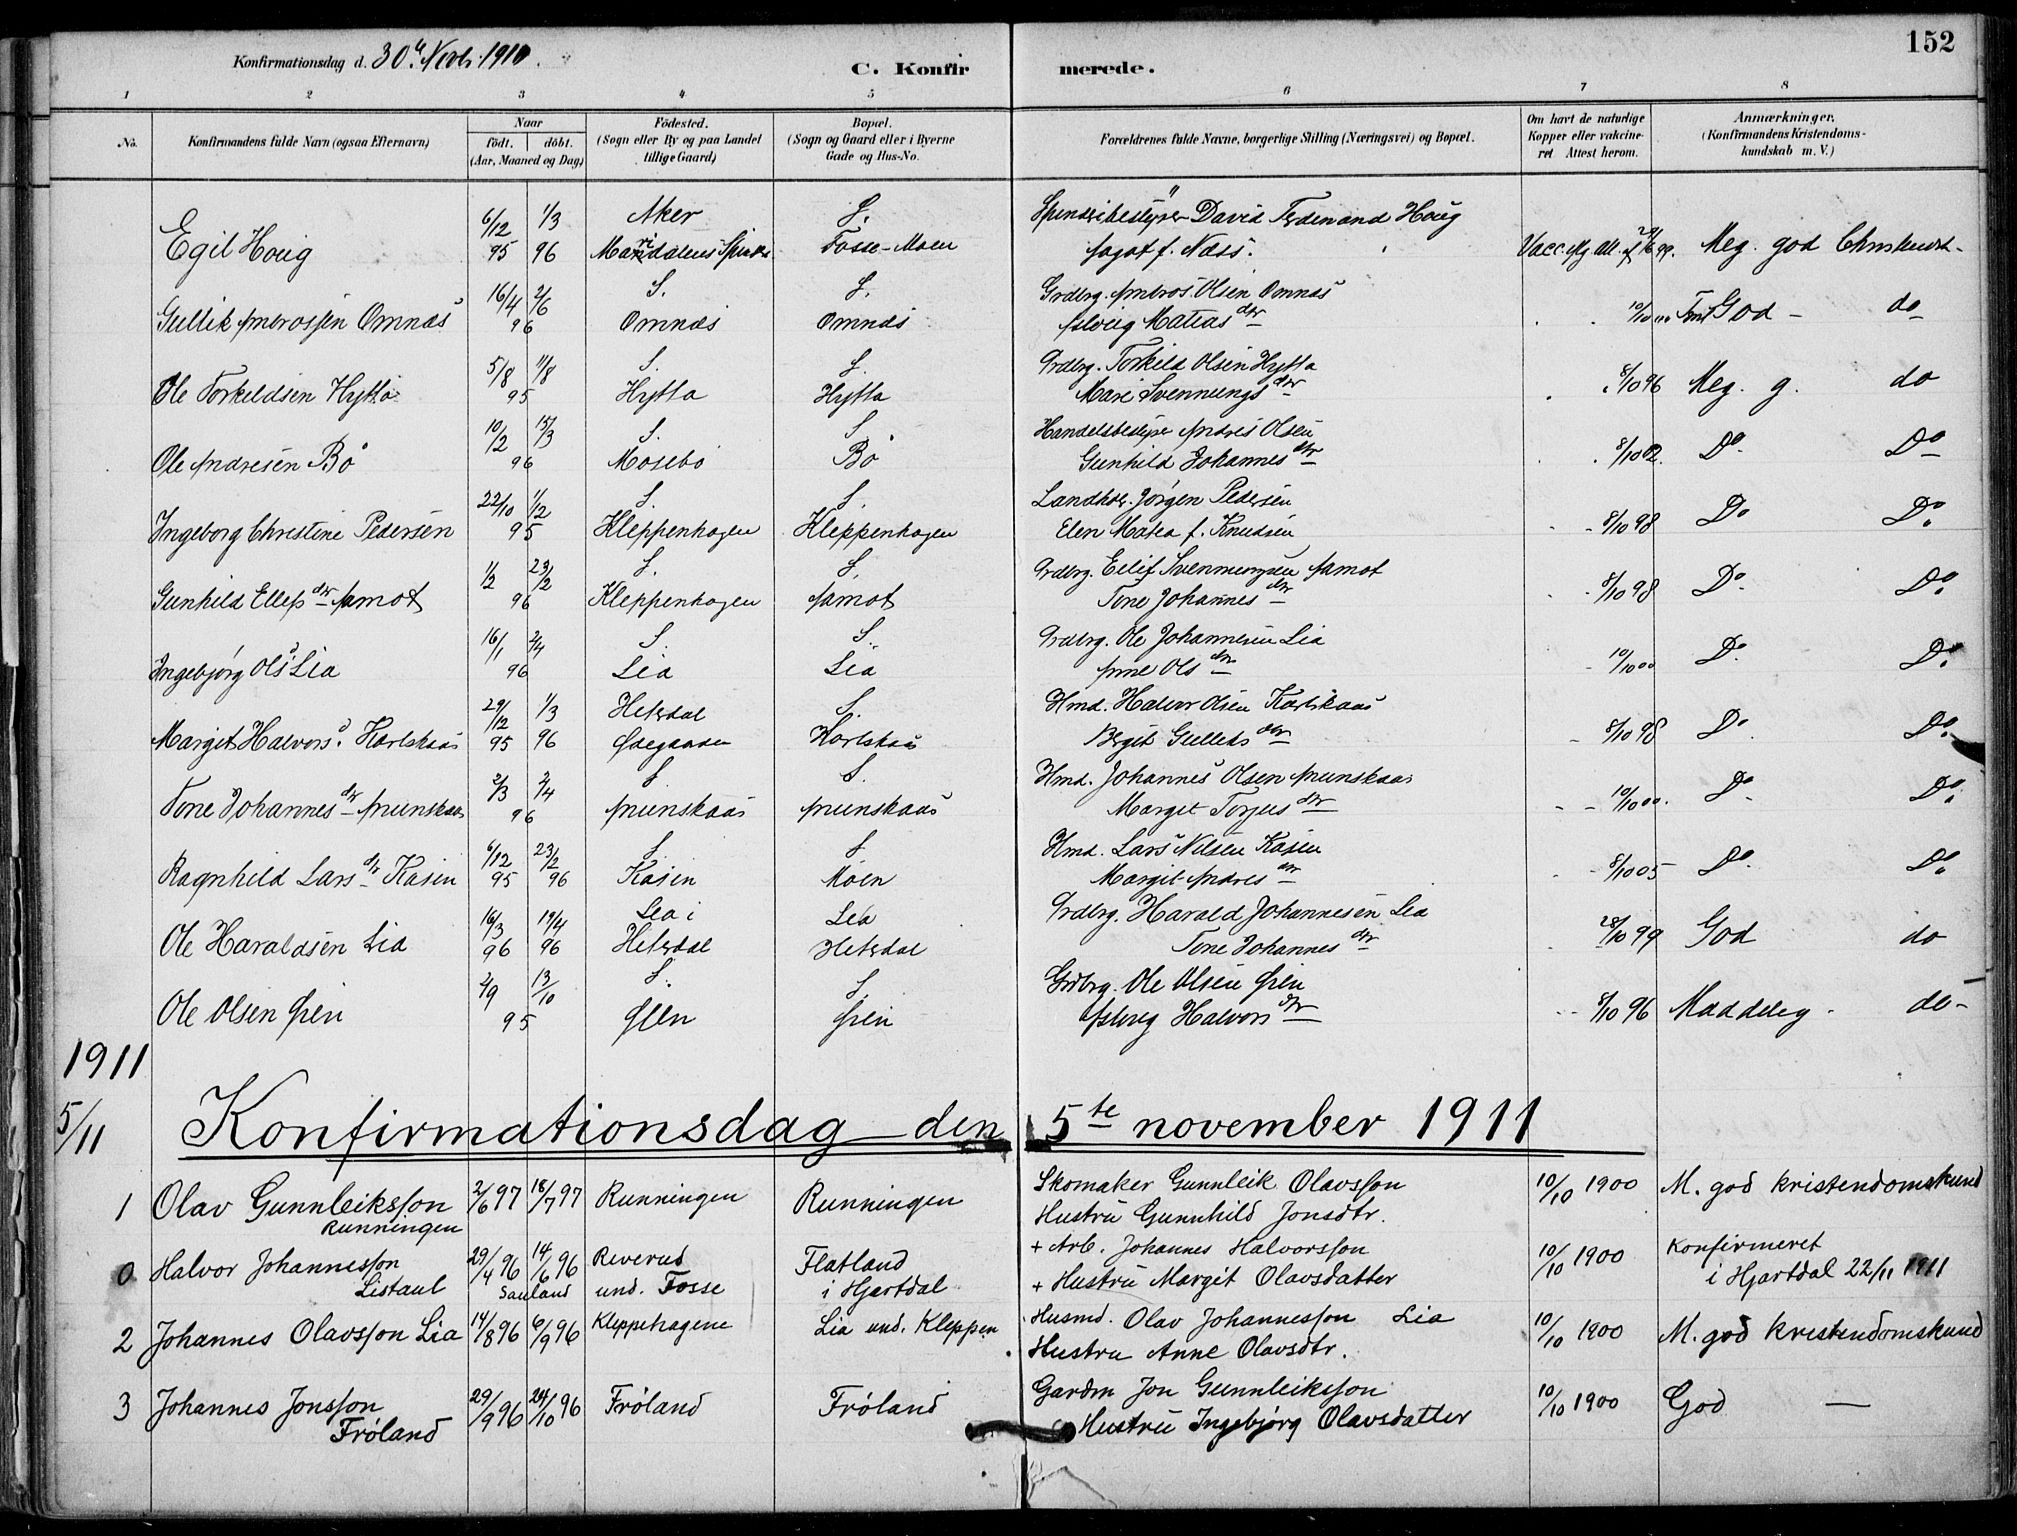 152
Konfirmationsdag d. 30te Novbr. 1910.
C. Konfirmerede.
1 2 3 4 5 6 7 8
No.
Konfirmandens fulde Navn (ogsaa Efternavn)
Naar
födt. döbt.
(Aar, Maaned og Dag)
Födested.
(Sogn eller By og paa Landet
tillige Gaard)
Bopæl.
(Sogn og Gaard eller i Byerne
Gade og Hus-No.
Forældrenes fulde Navne, borgerlige Stilling (Næringsvei) og Bopæl.
Om havt de naturlige
Kopper eller vakcine-
ret Attest herom.
Anmærkninger.
(Konfirmandens Kristendoms-
kundskab m. V.)
6/12 1/3 Aker S. David Ferdinand Houg
Egil Houg 95 96 Fosse-Moen Aagot f. Næss. Meg. god
16/4 2/6 S. S. Grdbrg. Ambros Olsen Omnæs
Gullik Ambrossen Omnæs 96 Omnæs Omnæs Aslaug Matias dtr 10/10 00 God - do
5/8 11/8 S. S. Grdbrg. Torkild Olsen Hytta
Ole Torkeldsen Hytta 95 Hytta Hytta Mari Svennungs dtr 8/10 96 Meg. g. do
10/2 15/3 S. S Handelsbestyrer Andres Olsen
Ole Andresen Bö 96 Mosebö Bö Gunhild Johannes dtr 8/10 02. Do Do
22/10 1/2 S. S. Jörgen Pedersen
Ingeborg Christine Pedersen 95 Kleppenhagen Kleppenhagen Elen Matea f. Knudsen 8/10 98 Do Do
1/2 23/2 S. S. Grdbrg. Eilif Svennungsen Aamot
Gunhild Ellefs dtr Aamot 96 Kleppenhagen Aamot Tone Johannes dtr 8/10 98 Do Do
16/1 2/4 S. S. Grdbrg. Ole Johannesen Lia
Ingebjørg Ols d Lia 96 Lia Lia Anne Ols dtr 10/10 00 Do Do
29/12 1/3 Hitterdal S. Hmd. Halvor Olsen Karlskaas
Margit Halvors d. Karlskaas 95 96 Ødegaarden Karlskaas Bergit Gulleks dtr 8/10 98 Do Do
2/3 2/4 S S. Hmd. Johannes Olsen Aunskaas
Tone Johannes dtr Aunskaas 96 Aunskaas Aunskaas Margit Torjus dtr 10/10 00. Do Do
6/12 23/2 S. S Hmd. Lars Nilsen Kåsen
Ragnhild Lars dtr Kåsen 95 96 Kåsen Moen Margit Andres dtr 8/10 05 Do Do
16/3 19/4 Lea i Lea Grdbrg. Harald Johannesen Lia
Ole Haraldsen Lia 96 96 Hitterdal Hitterdal Tone Johannes dtr 28/10 99 God do
2/9 13/10 S. S. Grdbrg. Ole Olsen Øien
Ole Olsen Øien 95 Øien Øien Aslaug Halvors dtr 8/10 96 Maadelig - do -
1911
5/11 Konfirmationsdag den 5te november 1911
1 Olav Gunnleiksson 2/6 97 18/7 97 Runningen Runningen Skomaker Gunnleik Olavsson 10/10 1900 M. god kristendomskund
Runningen Hustru Gunnhild Jonsdtr.
0 Halvor Johannesson 29/4 96 14/6 96 Reverud Flatland + Arb. Johannes Halvorsson 10/10 1900 Konfirmeret
Listaul Sauland und. Fosse i Hjartdal + Hustru Margit Olavsdatter i Hjartdal 22/11 1911
2 Johannes Olavsson Lia 14/8 96 6/9 96 Kleppehagene Lia und. Kleppen Husmd. Olav Johannesson Lia 10/10 1900 M. god kristendomskund
Hustru Anne Olavsdtr.
3 Johannes Jonsson 29/9 96 24/10 96 Frøland Frøland Gardm Jon Gunnleiksson 10/10 1900 God —
Frøland Hustru Ingebjørg Olavsdatter